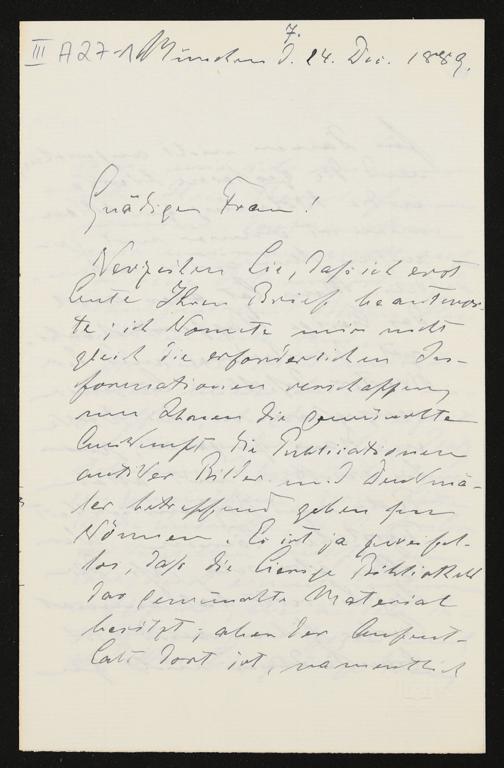 III A 27-1 München d. 14. Dec. 1889.
7.
Gnädige Frau!
Verzeihen Sie, daß ich erst
heute Ihren Brief beantwor-
te; ich konnte mir nicht
gleich die erforderlichen In-
formationen verschaffen,
um Ihnen die gewünschte
Auskunft die Publicationen
antiker Bilder und Denkmä-
ler betreffend geben zu
können. Es ist ja zweifel-
los, daß die hiesige Bibliothek
das gewünschte Material
besitzt; aber der Aufent-
halt dort ist, namentlich